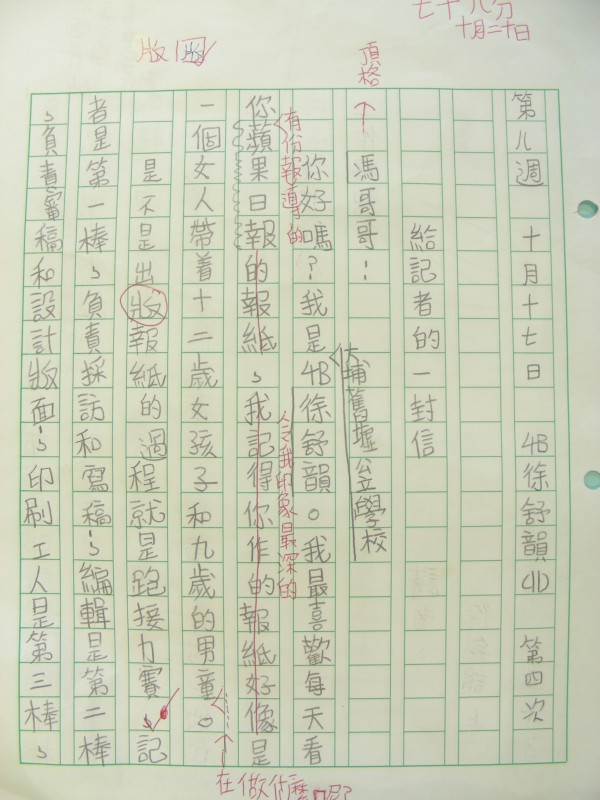 七十八分
十月二十日
第八週 十月十七日 4B徐舒韻(11) 第四次
給記者的一封信
頂格
馮哥哥：
大埔舊墟公立學校
你好嗎？我是4B徐舒韻。我最喜歡每天看
有份報導的
你蘋果日報的報紙，我記得你作的報紙好像是
令我印象最深的
一個女人帶着十二歲女孩子和九歲的男童。
在做什麼呢？
是不是出版報紙的過程就是跑接力賽，記
版
者是第一棒，負責採訪和寫稿，編輯是第二棒
，負責審稿和設計版面，印刷工人是第三棒，